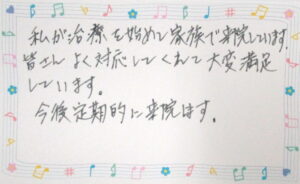 私が治療を始めて家族で来院しています.
皆さん よく対応してくれて大変満足
しています。
今後定期的に来院はす。